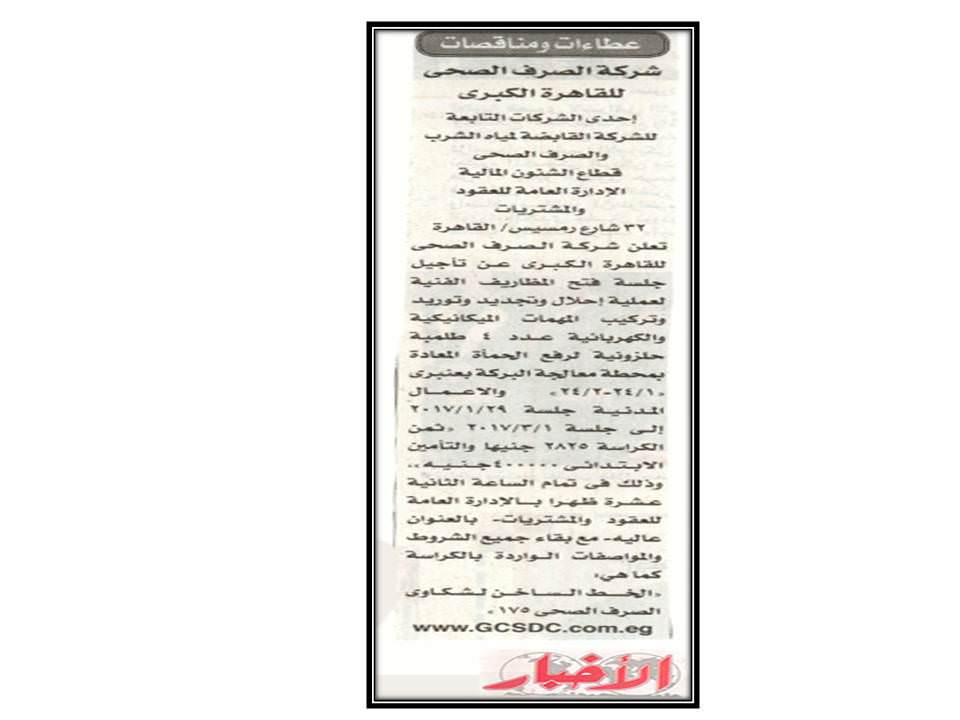 عطاءات ومناقصات
شركة الصرف الصحى
للقاهرة الكبرى
إحدى الشركات التابعة
للشركة القابضة لمياه الشرب
والصرف الصحى
قطاع الشئون المالية
الإدارة العامة للعقود
والمشتريات
٣٢ شارع رمسيس/ القاهرة
تعلن شركة الصرف الصحى
للقاهرة الكبرى عن تأجيل
جلسة فتح المظاريف الفنية
لعملية إحلال وتجديد وتوريد
وتركيب المهمات الميكانيكية
والكهربائية عدد ٤ طلمبة
حلزونية لرفع الحمأة المعادة
بمحطة معالجة البركة بعنبرى
«٢٤/١-٢٤/٢» والاعمال
المدنية جلسة ٢٠١٧/١/٢٩
إلى جلسة ٢٠١٧/٣/١ «ثمن
الكراسة ٢٨٢٥ جنيها والتأمين
الابتدائى ٤٠٠٠٠٠ جنيه»..
وذلك فى تمام الساعة الثانية
عشرة ظهرا بالإدارة العامة
للعقود والمشتريات- بالعنوان
عاليه- مع بقاء جميع الشروط
والمواصفات الواردة بالكراسة
كما هي،
«الخط الساخن لشكاوى
الصرف الصحى ١٧٥»
www.GCSDC.com.eg
الأخبار